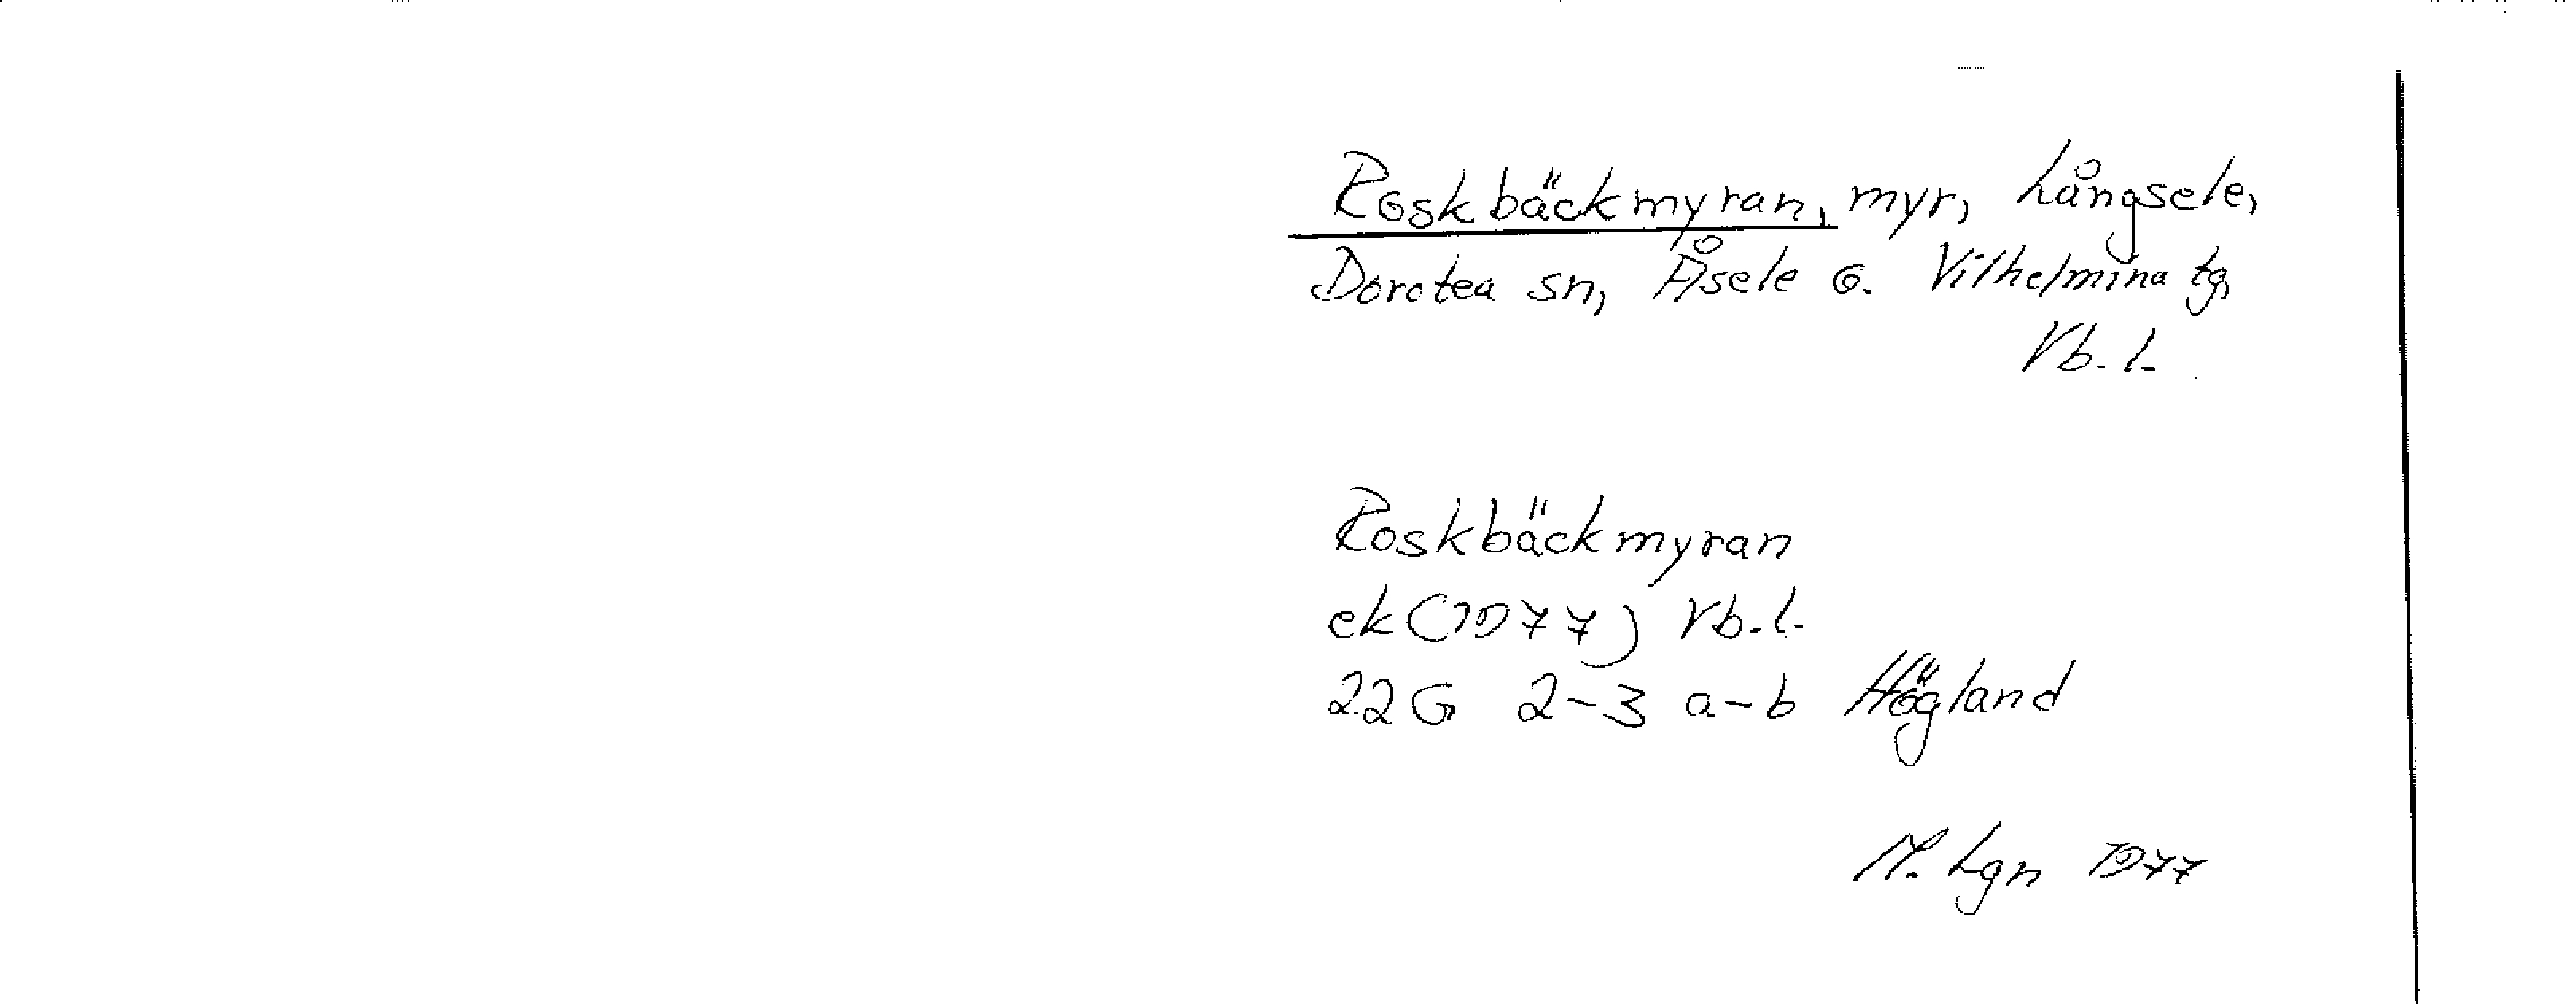 Roskbäckmyran, myr, Långsele,
Dorotea sn, Åsele o. Vilhelmina tg,
Vb. l.
Roskbäckmyran
ek (1977) Vb. l.
22G 2-3 a-b Högland
M. Lgn 1977